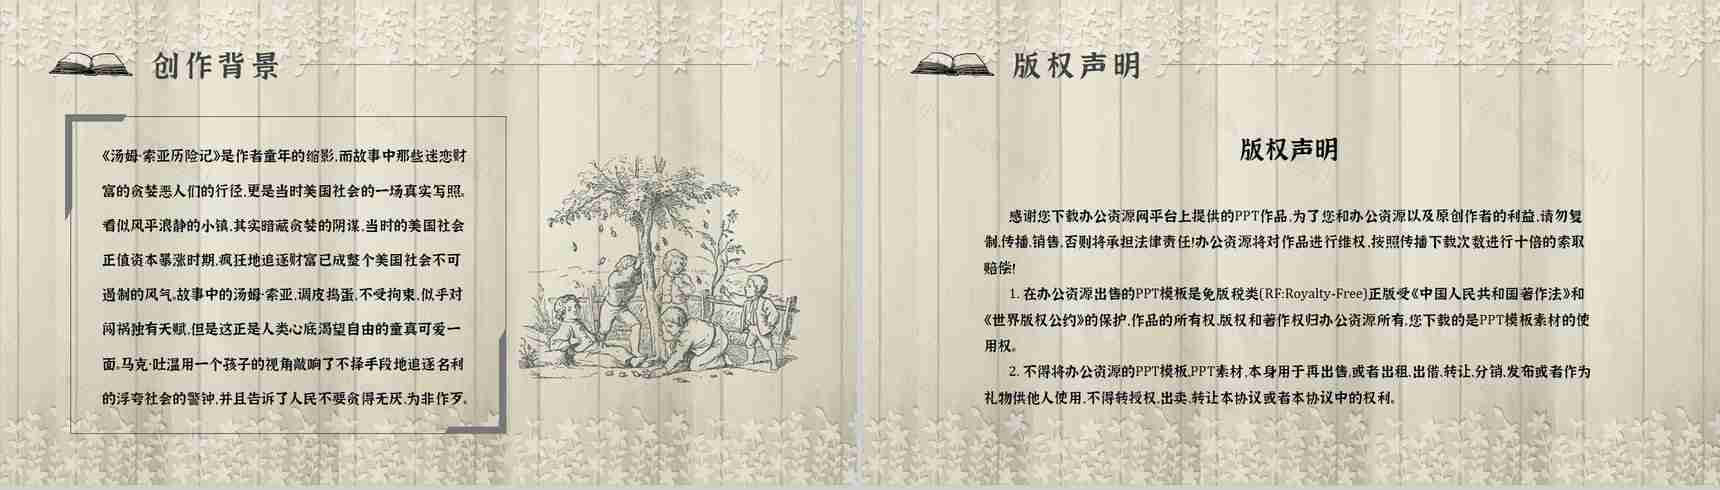 创作背景
《汤姆·索亚历险记》是作者童年的缩影,而故事中那些迷恋财
富的贪婪恶人们的行径,更是当时美国社会的一场真实写照。
看似风平浪静的小镇,其实暗藏贪婪的阴谋,当时的美国社会
正值资本暴涨时期,疯狂地追逐财富已成整个美国社会不可
遏制的风气。故事中的汤姆·索亚,调皮捣蛋,不受拘束,似乎对
闯祸独有天赋,但是这正是人类心底渴望自由的童真可爱一
面。马克·吐温用一个孩子的视角敲响了不择手段地追逐名利
的浮夸社会的警钟,并且告诉了人民不要贪得无厌,为非作歹。
版权声明
版权声明
感谢您下载办公资源网平台上提供的PPT作品,为了您和办公资源以及原创作者的利益,请勿复
制,传播,销售,否则将承担法律责任!办公资源将对作品进行维权,按照传播下载次数进行十倍的索取
赔偿!
1. 在办公资源出售的PPT模板是免版税类(RF:Royalty-Free)正版受《中国人民共和国著作法》和
《世界版权公约》的保护,作品的所有权,版权和著作权归办公资源所有,您下载的是PPT模板素材的使
用权。
2. 不得将办公资源的PPT模板,PPT素材,本身用于再出售,或者出租,出借,转让,分销,发布或者作为
礼物供他人使用,不得转授权,出卖,转让本协议或者本协议中的权利。